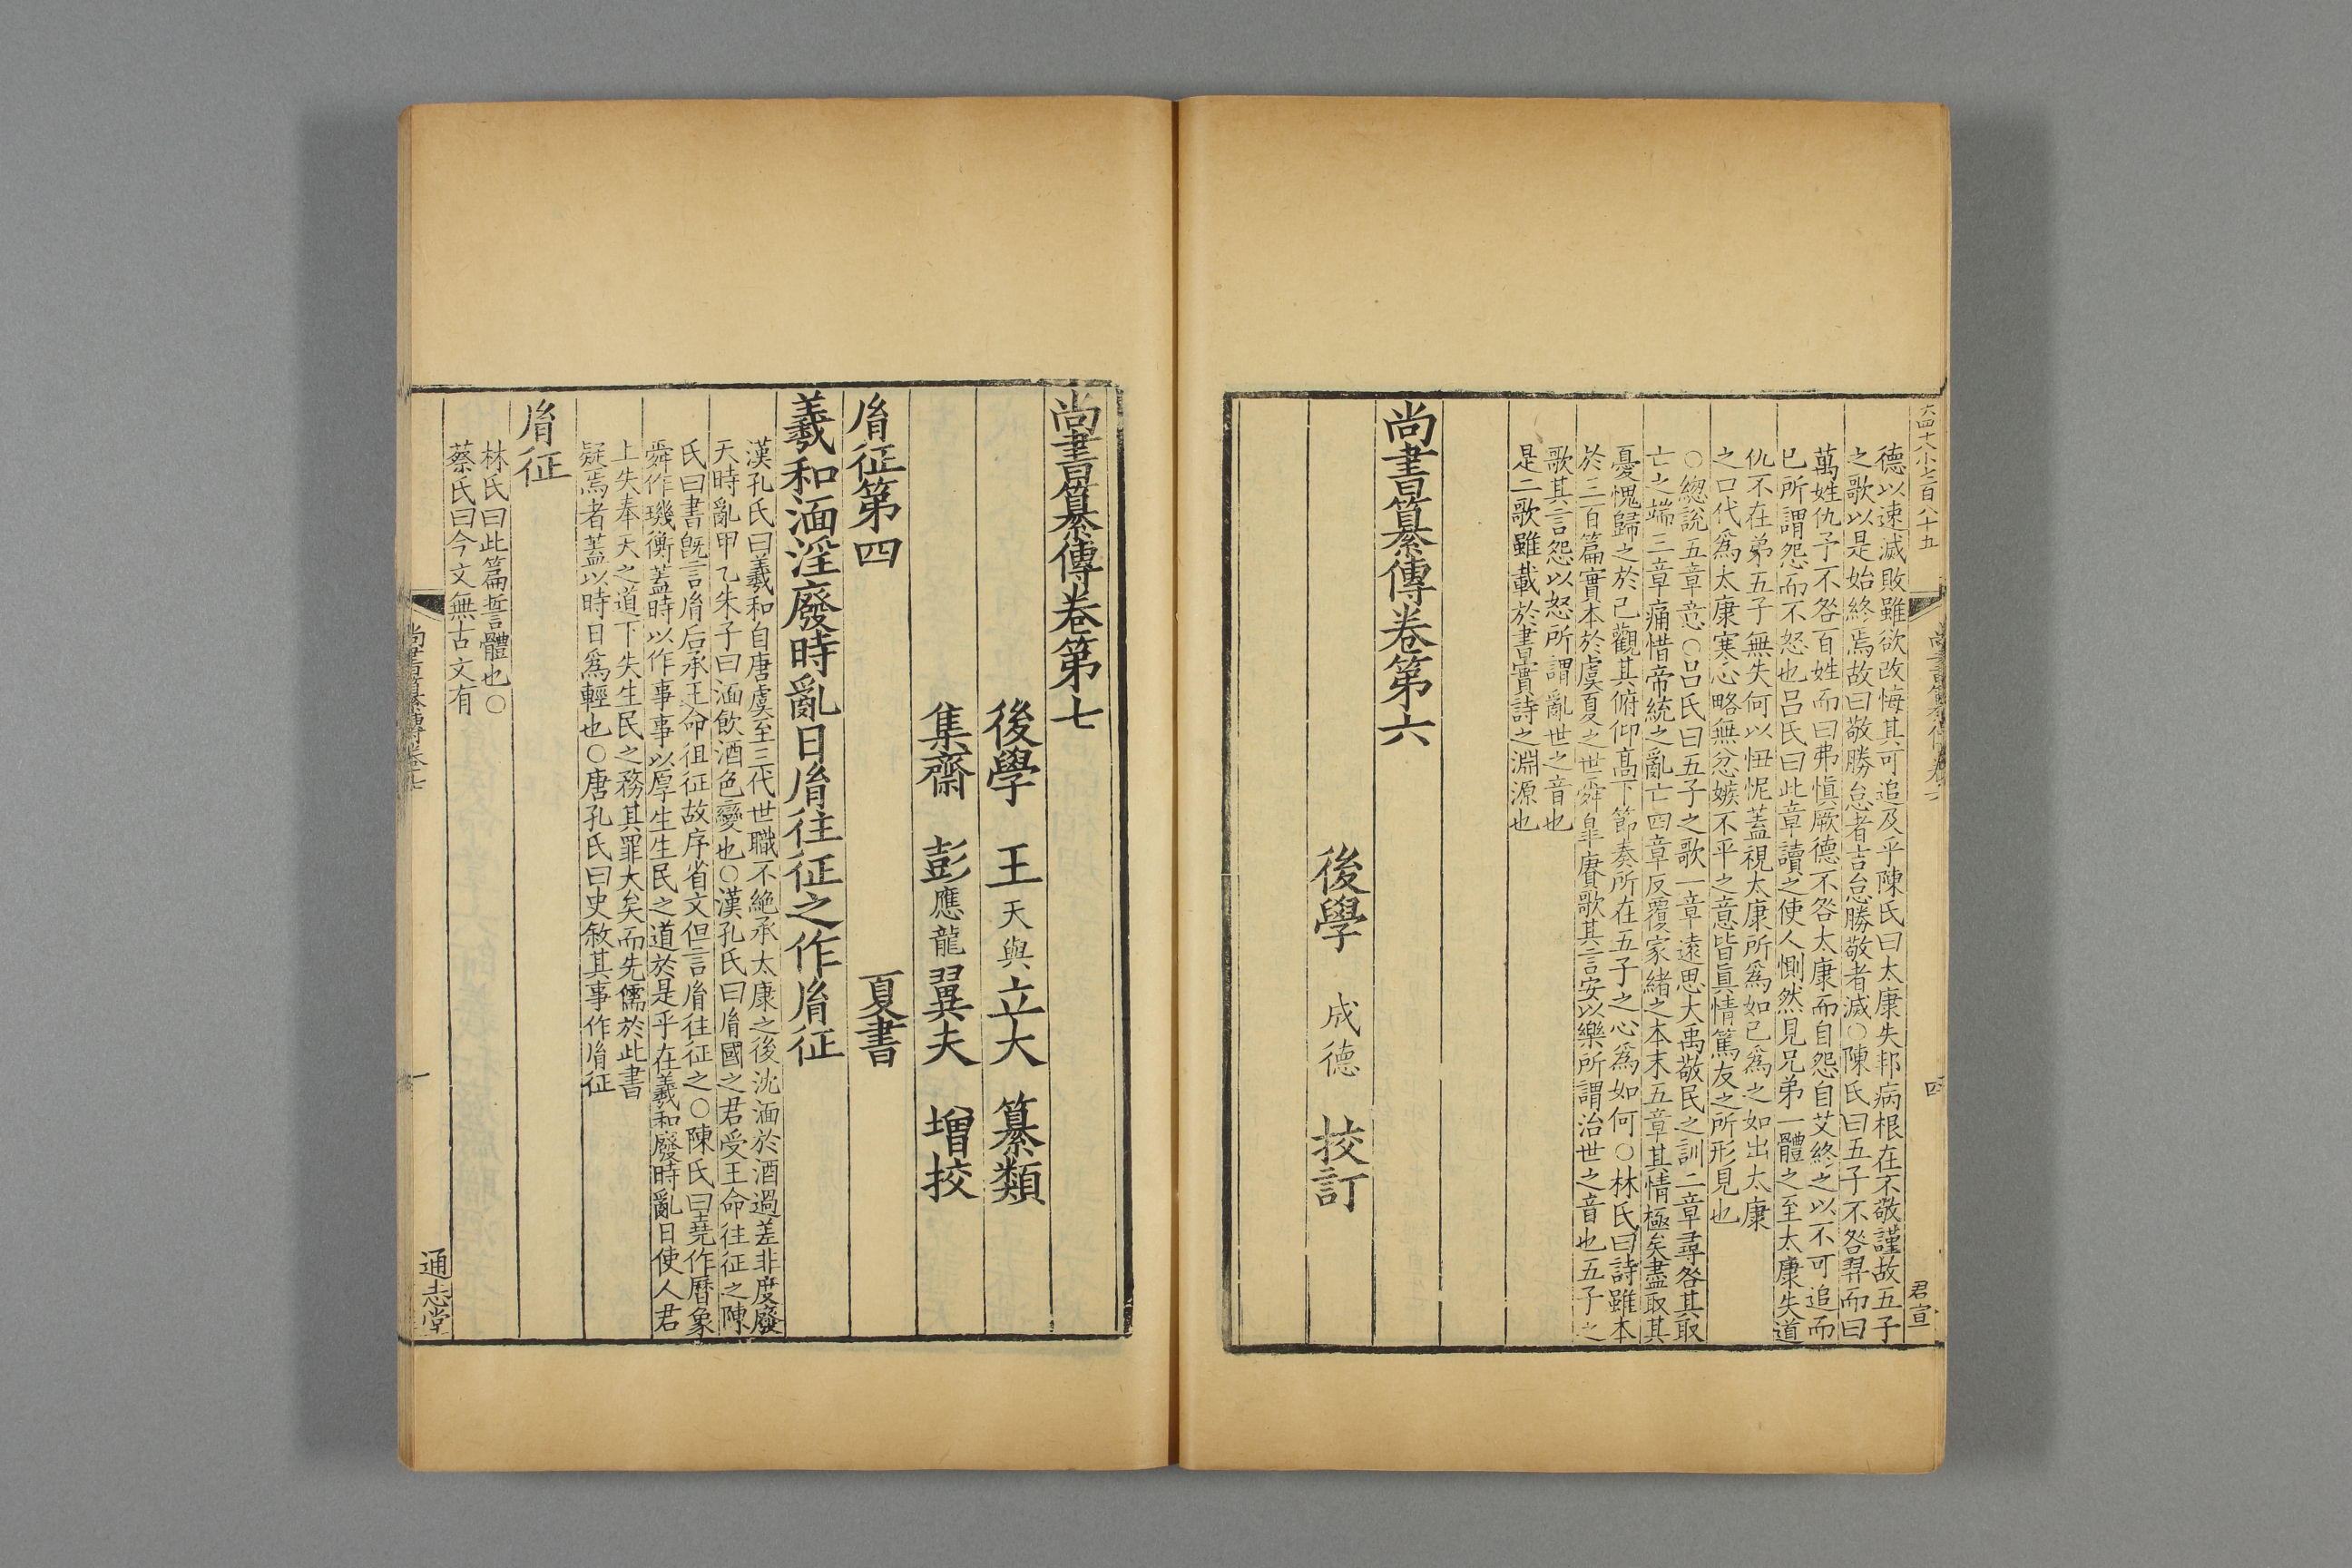 六四大八小七百八十五
君宣
四
德以速滅敗雖欲改悔其可追及乎陳氏曰太康失邦病根在不敬謹故五子
之歌以是始終焉故曰敬勝怠者吉怠勝敬者滅○陳氏曰五子不咎羿而曰
萬姓仇予不咎百姓而曰弗愼厥德不咎太康而自怨自艾終之以不可追而
已所謂怨而不怒也呂氏曰此章讀之使人惻然見兄弟一體之至太康失道
仇不在弟五子無失何以忸怩蓋視太康所爲如已爲之如出太康
之口代爲太康寒心略無忿嫉不平之意皆眞情篤友之所形見也
○緫說五章意○呂氏曰五子之歌一章遠思大禹敬民之訓二章尋咎其取
亡之端三章痛惜帝統之亂亡四章反覆家緒之本末五章其情極矣盡取其
憂愧歸之於已觀其俯仰髙下節奏所在五子之心爲如何○林氏曰詩雖本
於三百篇實本於虞夏之世舜皐賡歌其言安以樂所謂治世之音也五子之
歌其言怨以怒所謂亂世之音也
是二歌雖載於書實詩之淵源也
尚書纂傳卷第六
後學 成德 挍訂
尚書纂傳卷第七
後學 王天與立大 纂類
集齋 彭應龍翼夫 增挍
胤征第四 夏書
羲和湎淫廢時亂日胤往征之作胤征
漢孔氏曰羲和自唐虞至三代世職不絶承太康之後沈湎於酒過差非度廢
天時亂甲乙朱子曰湎飲酒色變也○漢孔氏曰胤國之君受王命往征之陳
氏曰書旣言胤后承王命徂征故序省文但言胤往征之○陳氏曰堯作曆象
舜作璣衡蓋時以作事事以厚生生民之道於是乎在羲和廢時亂日使人君
上失奉天之道下失生民之務其罪大矣而先儒於此書
疑焉者蓋以時日爲輕也○唐孔氏曰史敘其事作胤征
胤征
林氏曰此篇誓體也○
蔡氏曰今文無古文有
尚書纂傳卷七
一
通志堂